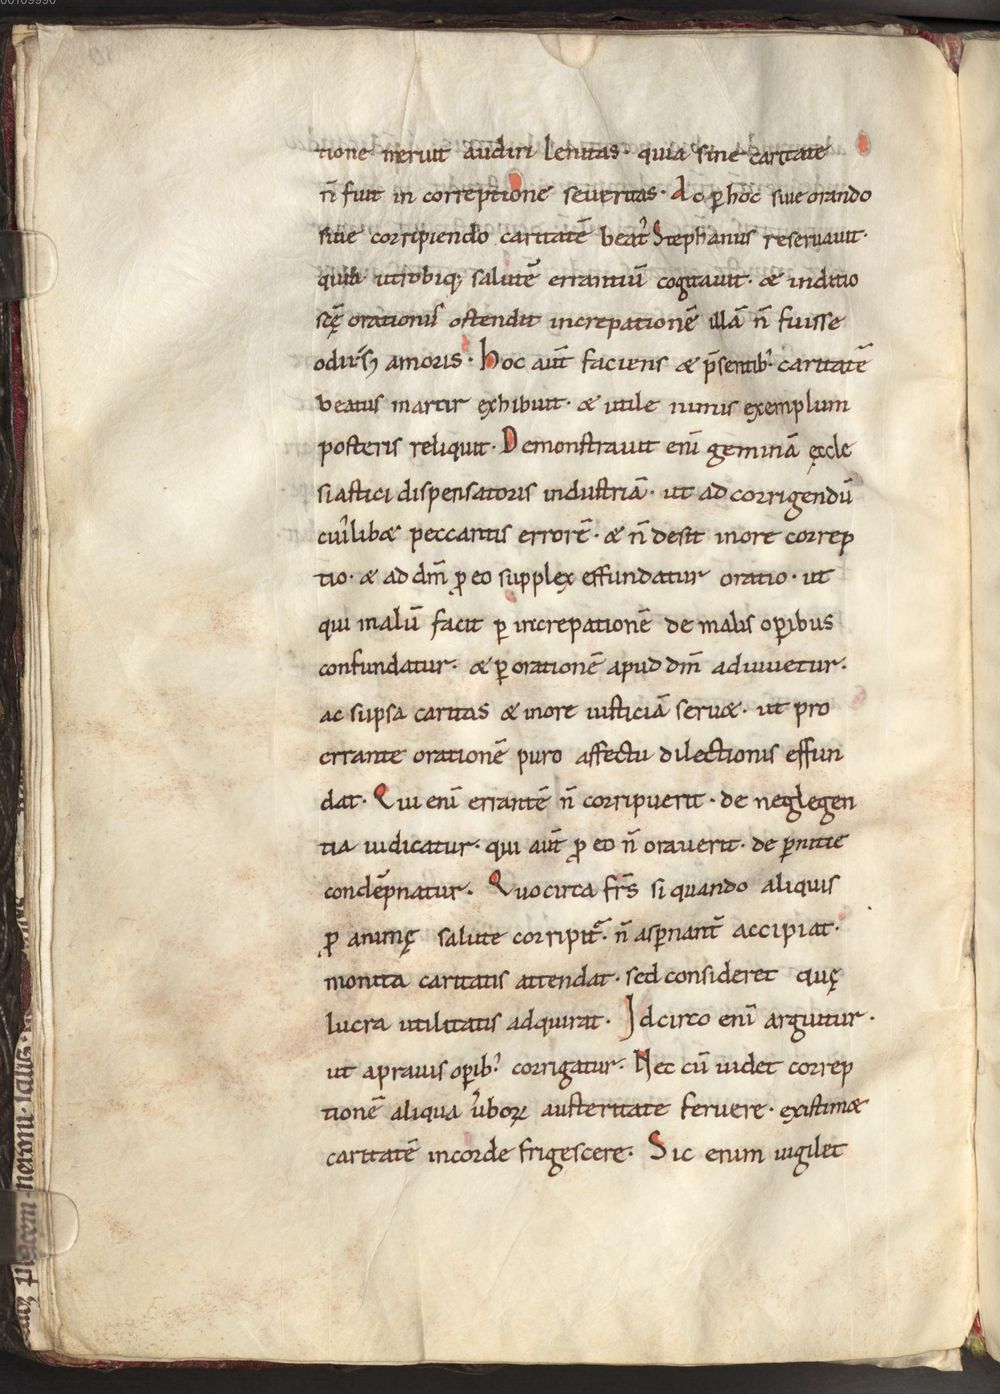 00109990
tione meruit audiri lenitas · quia sine caritate
n̄ fuit in correptione seueritas · Ac ꝑ hoc siue orando
siue corripiendo caritatē beat᾽ Stephanus reseruauit ·
quib᾽ utrobiq; salutē errantiū cogitauit · & inditio
scę̄ orationis ostendit increpationē illā n̄ fuisse
amoris · hoc aut̄ faciens & p̄sentib᾽ caritatē
beatus martir exhibuit · & utile nimis exemplum
posteris reliquit · Demonstrauit eni᷎ geminā ęccle
siastici dispensatoris industriā · ut ad corrigendū
cui᾽libæ peccantis errorē · & n̄ desit in ore correp
tio · & ad dm̄ ꝓ eo supplex effundatur oratio · ut
qui malū facit ꝑ increpationē de malis oꝑibus
confundatur · & ꝑ orationē apud dm̄ adiuuetur ·
ac sup̱sa caritas & in ore iusticiā seruæ · ut pro
errante orationē puro affectu dilectionis effun
dat · Qui eni᷎ errantē n̄ corripuerit · de neglegen
tia iudicatur · qui aut̄ ꝓ eo n̄ orauerit · de ꝑnitie
condēpnatur · Quocirca frs̄ si quando aliquis
ꝓ animę salute corripit᷑ · n̄ asꝑnant᷑ accipiat ·
monita caritatis attendat · sed consideret quę
lucra utilitatis adquirat · Idcirco eni᷎ arguitur ·
ut aprauis oꝑib᾽ corrigatur · Nec cū uidet correp
tionē aliqua u᷎boꝝ austeritate feruere · existimæ
caritatē incorde frigescere · Sic enim uigilet